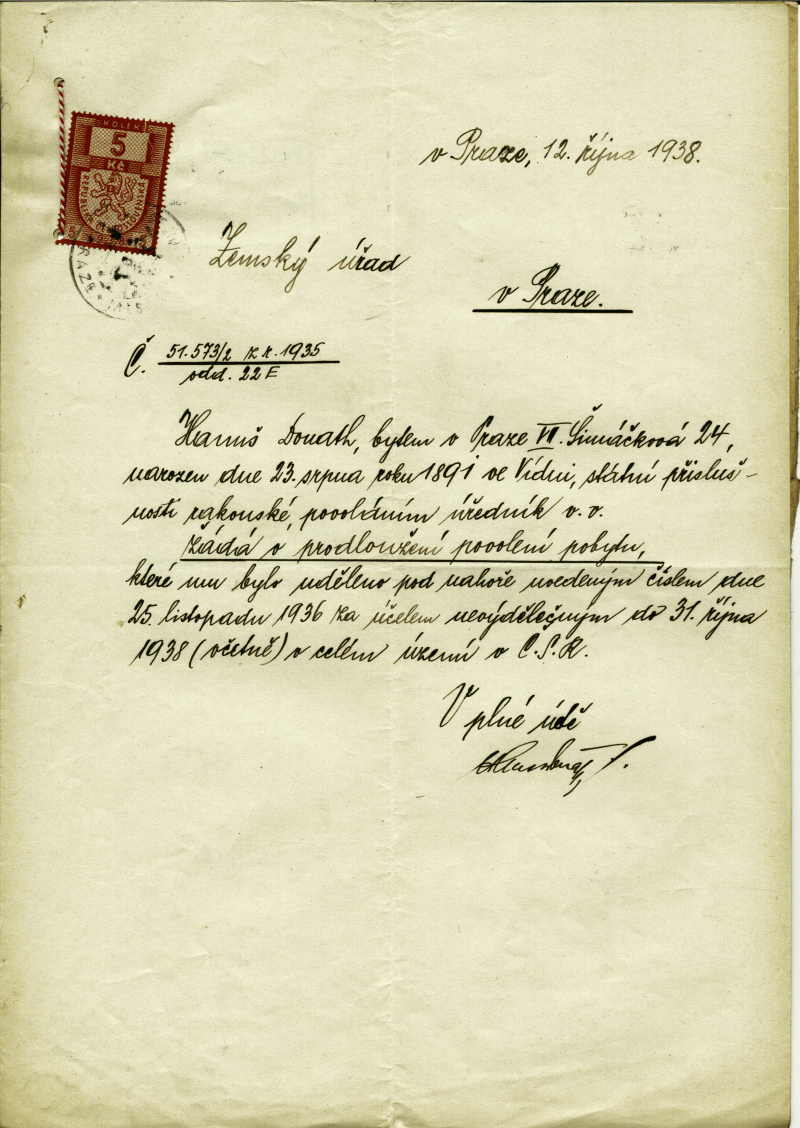 v Praze, 12. října 1938.
KOLEK
5
Kč
REPUBLIKA
Zemský úřad
v Praze.
Č. 51.573/2 z r. 1935
odd. 22 E
Hanuš Donath, bytem v Praze VII. Šimáčková 24,
narozen dne 23. srpna roku 1891 ve Vídni, státní přísluš-
nosti rakouské, povoláním úředník v. v.
žádá o prodloužení povolení pobytu,
které mu bylo uděleno pod nahoře uvedeným číslem dne
25. listopadu 1936 za účelem nevýdělečným do 31. října
1938 (včetně) v celém území v Č.S.R.
V plné úctě